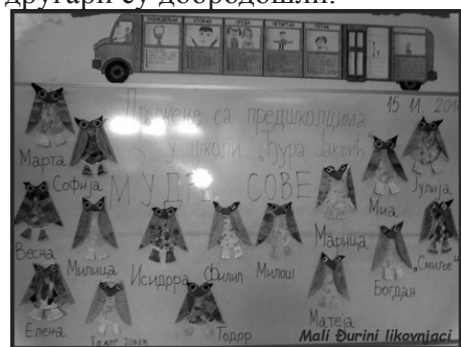 другари су добродошли.
ПОНЕДЕЉАК УТОРАК СРЕДА ЧЕТВРТАК ПЕТАК
Дружење са предшколцима
15 11
у школи „Ђура Јакшић
МУДРЕ СОВЕ
Марта
Софија
Марица
Миа
Јулија
Весна
Милица
Исидора
Филип
Милош
Богдан
„Смиље"
Елена
Тодор
Матеја
Mali Đurini likovnjaci